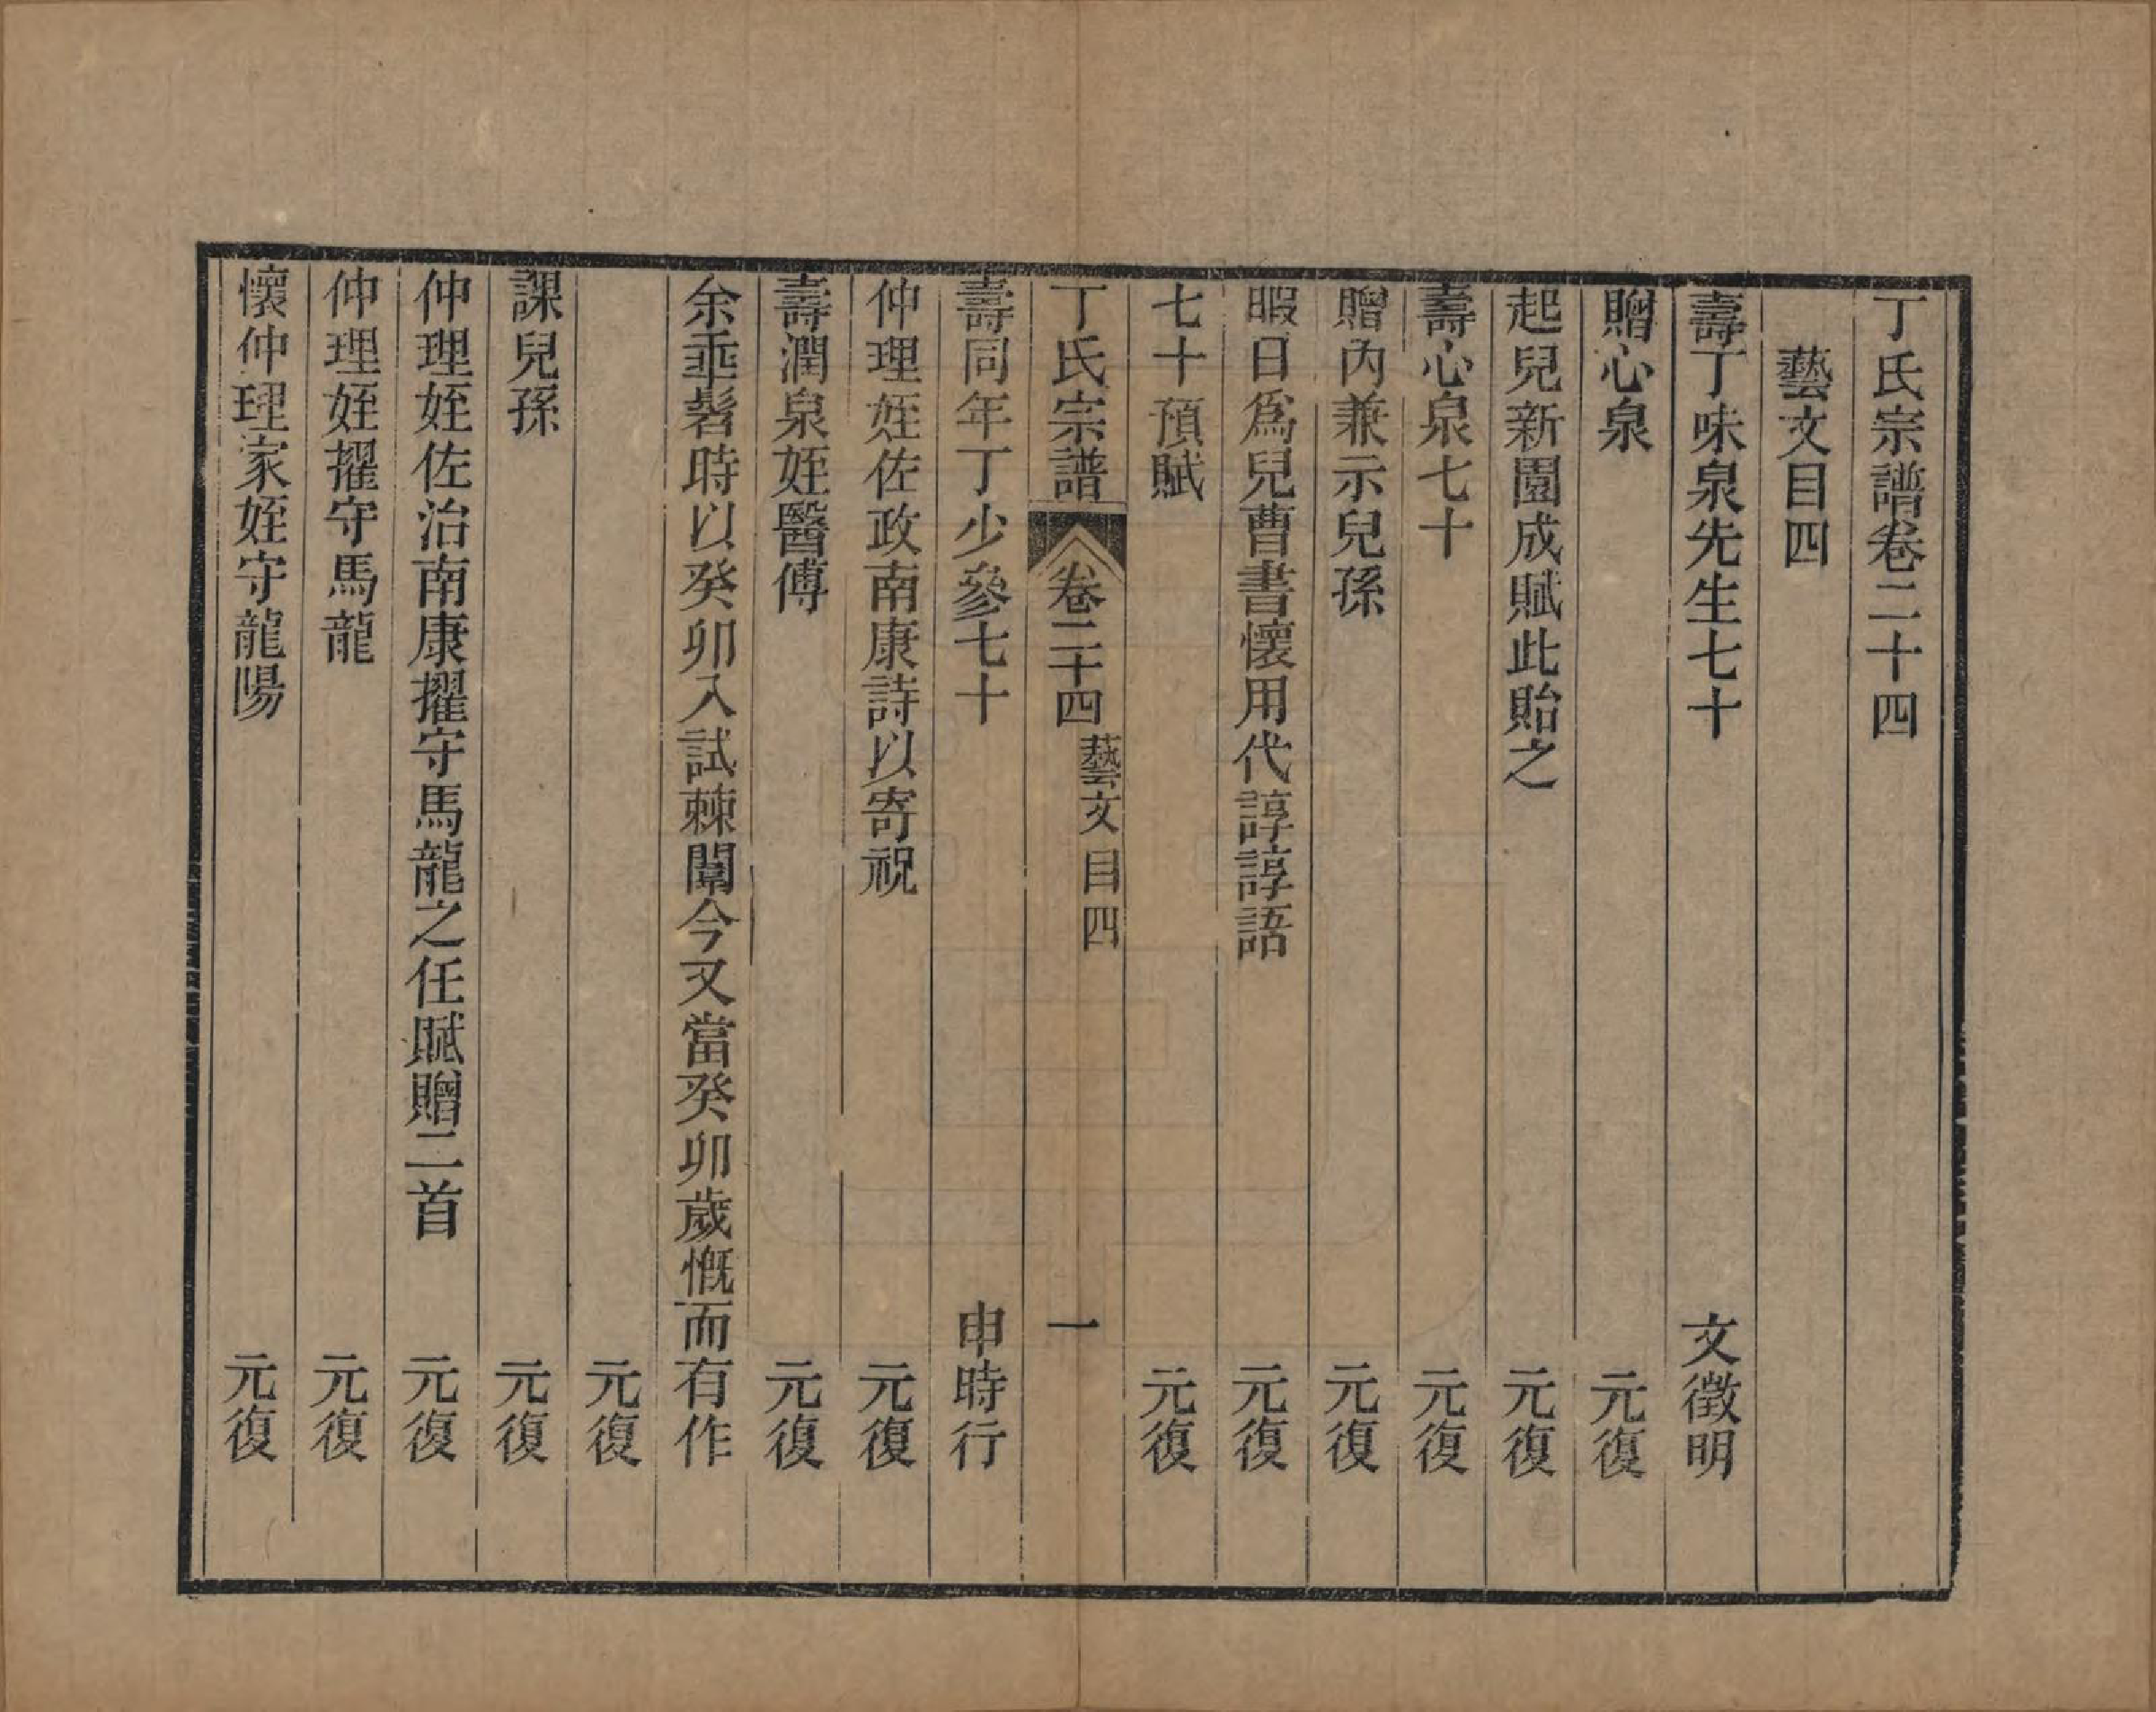 丁氏宗譜卷二十四
藝文目四
壽丁味泉先生七十 文徵明
贈心泉 元復
起兒新園成賦此貽之 元復
壽心泉七十 元復
贈內兼示兒孫 元復
暇日爲兒曹書懷用代諄諄語 元復
七十預賦 元復
丁氏宗譜 卷二十四 藝文目四 一
壽同年丁少參七十 申時行
仲理姪佐政南康詩以寄祝 元復
壽潤泉姪醫傅 元復
余乖髫時以癸卯入試棘闈今又當癸卯歲慨而有作
元復
課兒孫 元復
仲理姪佐治南康擢守馬龍之任賦贈二首 元復
仲理姪擢守馬龍 元復
懷仲理家姪守龍陽 元復